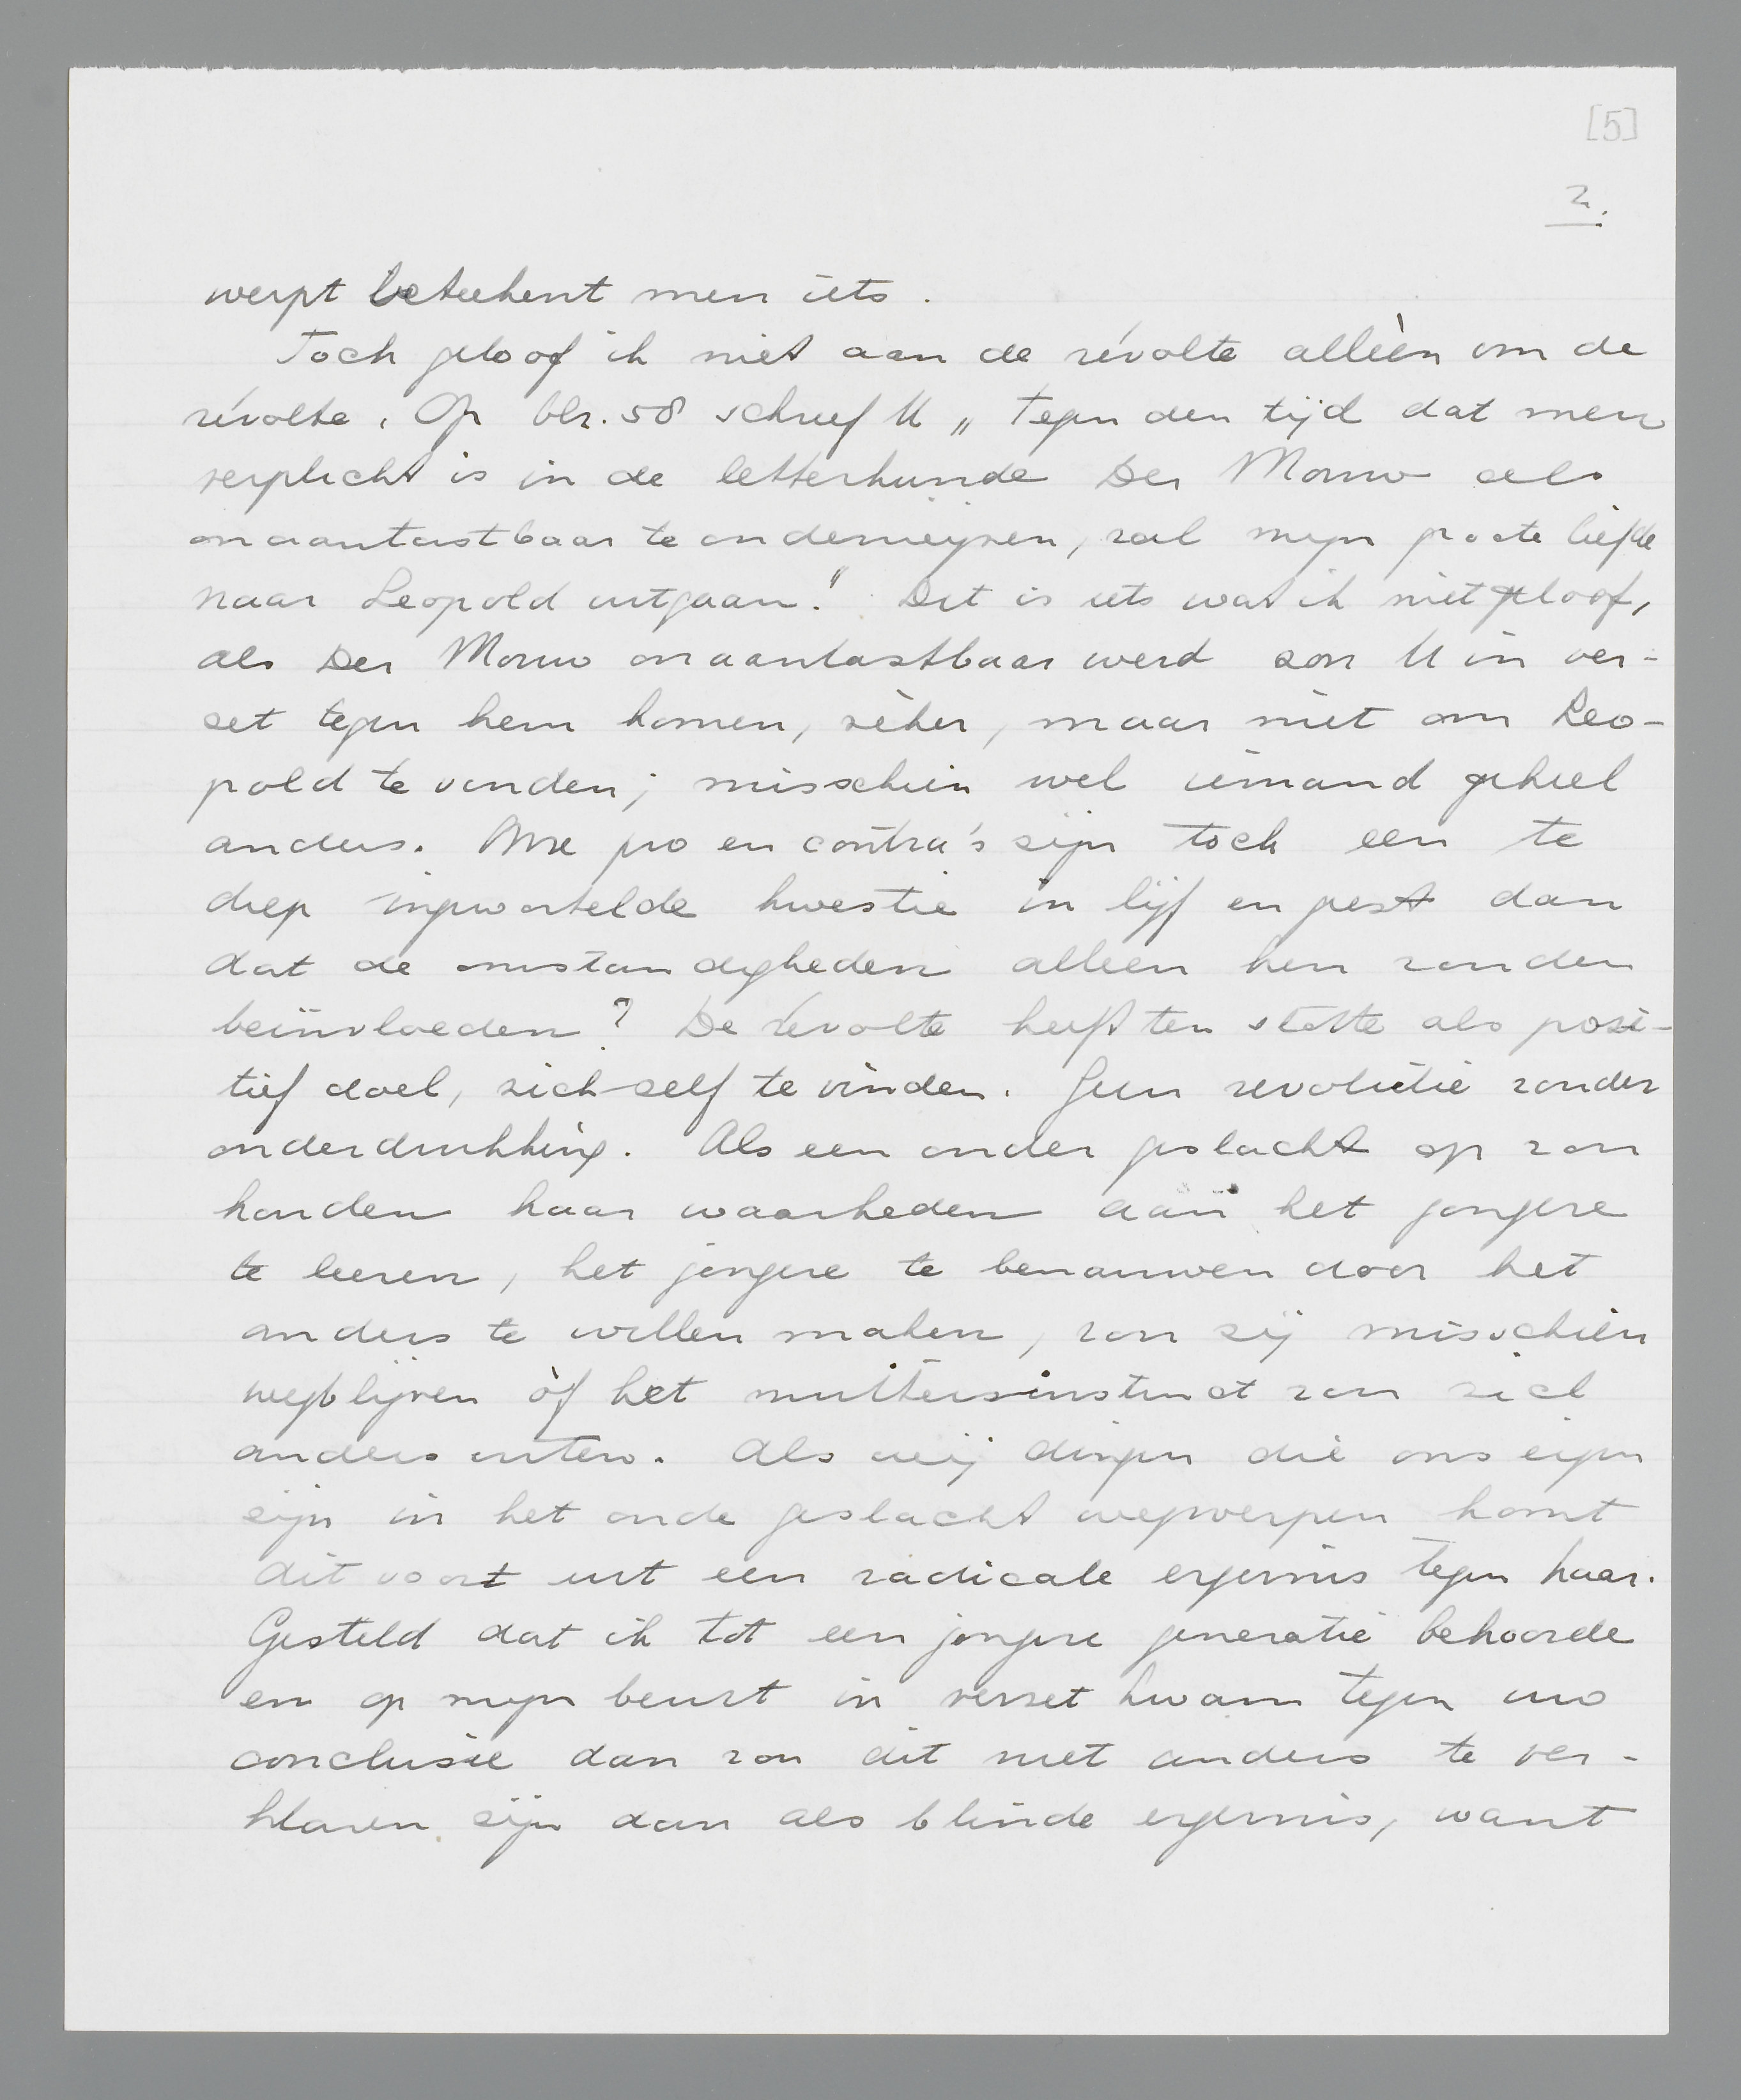 [5]
2.
werpt beteekent men iets.
Toch geloof ik niet aan de révolte alléén om de
révolte. Op blz. 58 schreef U „Tegen den tijd dat men
verplicht is in de letterkunde Der Mouw als
onaantastbaar te onderwijzen, zal mijn groote liefde
naar Leopold uitgaan." Dit is iets wat ik niet geloof,
als Der Mouw onaantastbaar werd zou U in ver-
zet tegen hem komen, zéker, maar niet om Leo-
pold te vinden; misschien wel iemand geheel
anders. Uwe pro en contra's zijn toch een te
diep ingewortelde kwestie in lijf en geest dan
dat de omstandigheden alleen hen zouden
beïnvloeden? De révolte heeft ten slotte als posi-
tief doel, zich-zelf te vinden. Geen revolutie zonder
onderdrukking. Als een ouder geslacht op zou
houden haar waarheden aan het jongere
te leeren, het jongere te benauwen door het
anders te willen maken, zou zij misschien
wegblijven òf het muitersinstinct zou zich
anders uiten. Als wij dingen die ons eigen
zijn in het oude geslacht wegwerpen komt
dit voort uit een radicale ergernis tegen haar.
Gesteld dat ik tot een jongere generatie behoorde
en op mijn beurt in verzet kwam tegen uw
conclusie dan zou dit niet anders te ver-
klaren zijn dan als blinde ergernis, want